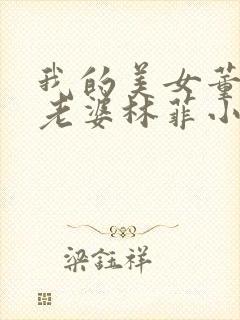 我的美女董
老婆林菲小
梁钰祥